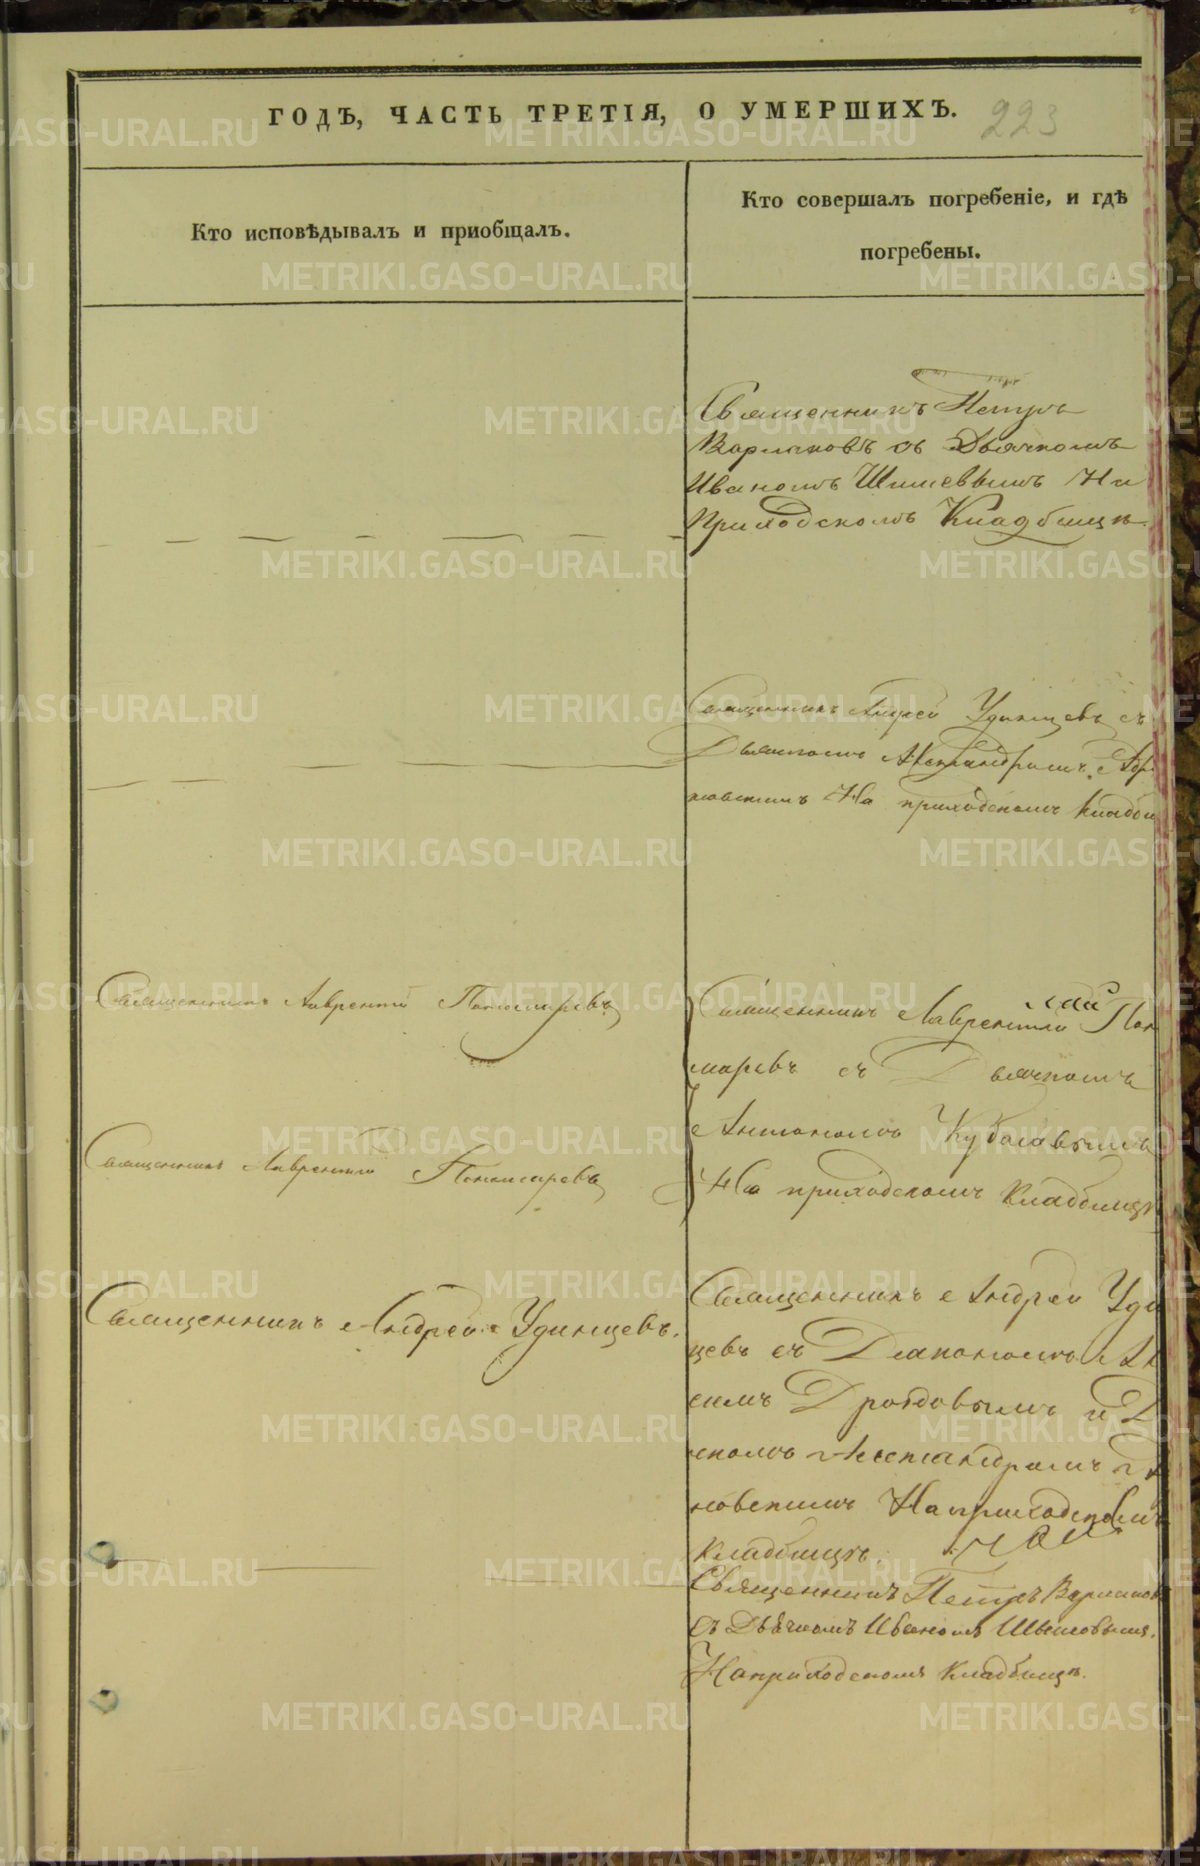 ГОДЪ, ЧАСТЬ ТРЕТІЯ, О УМЕРШИХЪ. 223
Кто исповѣдывалъ и приобщалъ.
Кто совершалъ погребеніе, и гдѣ
погребены.
Священникъ Петръ
съ Дьячкомъ
Иваномъ На
Приходскомъ Кладбищѣ.
Священникъ Андрей Удинцевъ съ
Дьячкомъ Александромъ
На приходскомъ кладби
Священникъ Лаврентій Пономаревъ
Священникъ Лаврентій Пон
маревъ съ Дьячкомъ
Антономъ
На приходскомъ кладбищѣ
Священникъ Лаврентій Пономаревъ
Священникъ Андрей Удинцевъ.
Священникъ Андрей Уди
цевъ съ Діакономъ
Дроздовымъ и Д
Александромъ
На приходскомъ
кладбищѣ.
Священникъ Петръ
съ Дьячкомъ Иваномъ
На приходскомъ кладбищѣ.
METRIKI.GASO-URAL.RU